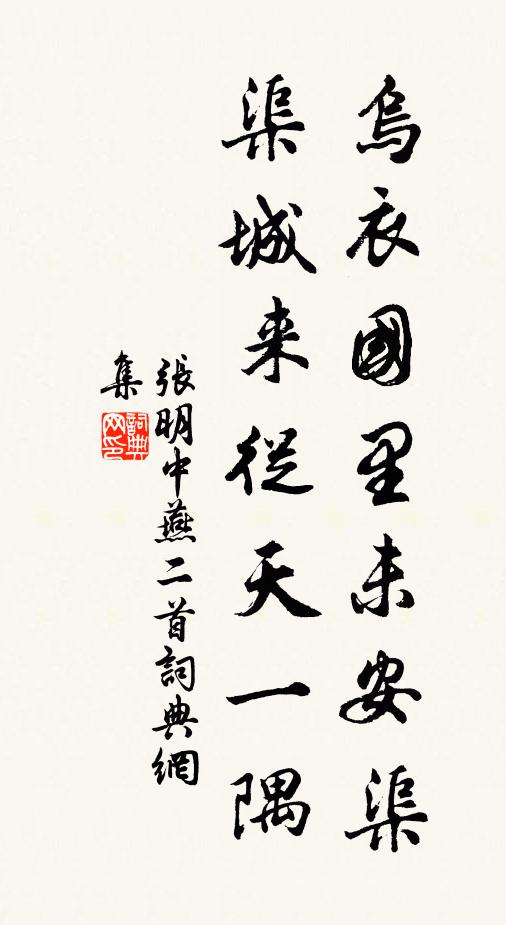 烏衣國里未安渠
渠城来從天一隅
張明中燕二首詞典網
集
詞典
网印